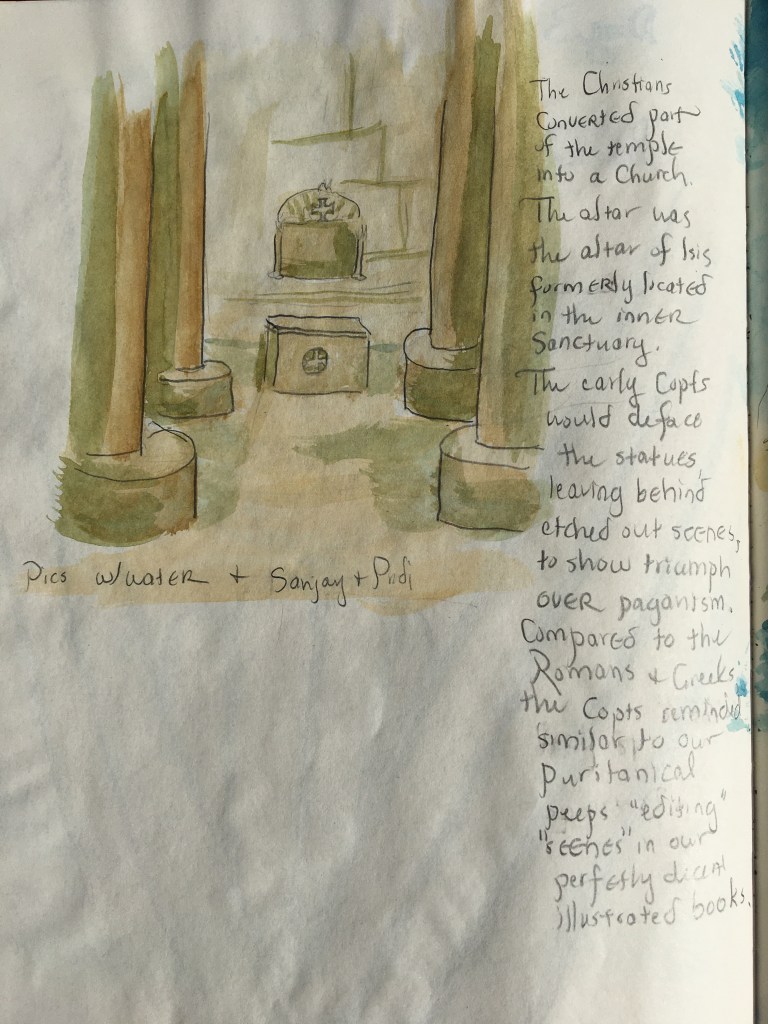 The Christians
Converted part
of the temple
into a Church.
The altar was
the altar of Isis
formerly located
in the inner
Sanctuary.
The early Copts
would deface
the statues,
leaving behind
etched out scenes,
to show triumph
over paganism.
Compared to the
Romans + Greeks
the Copts reminded
similar to our
puritanical
peeps "editing"
"scenes" in our
perfectly decent
illustrated books.
Pics w/water + Sanjay +